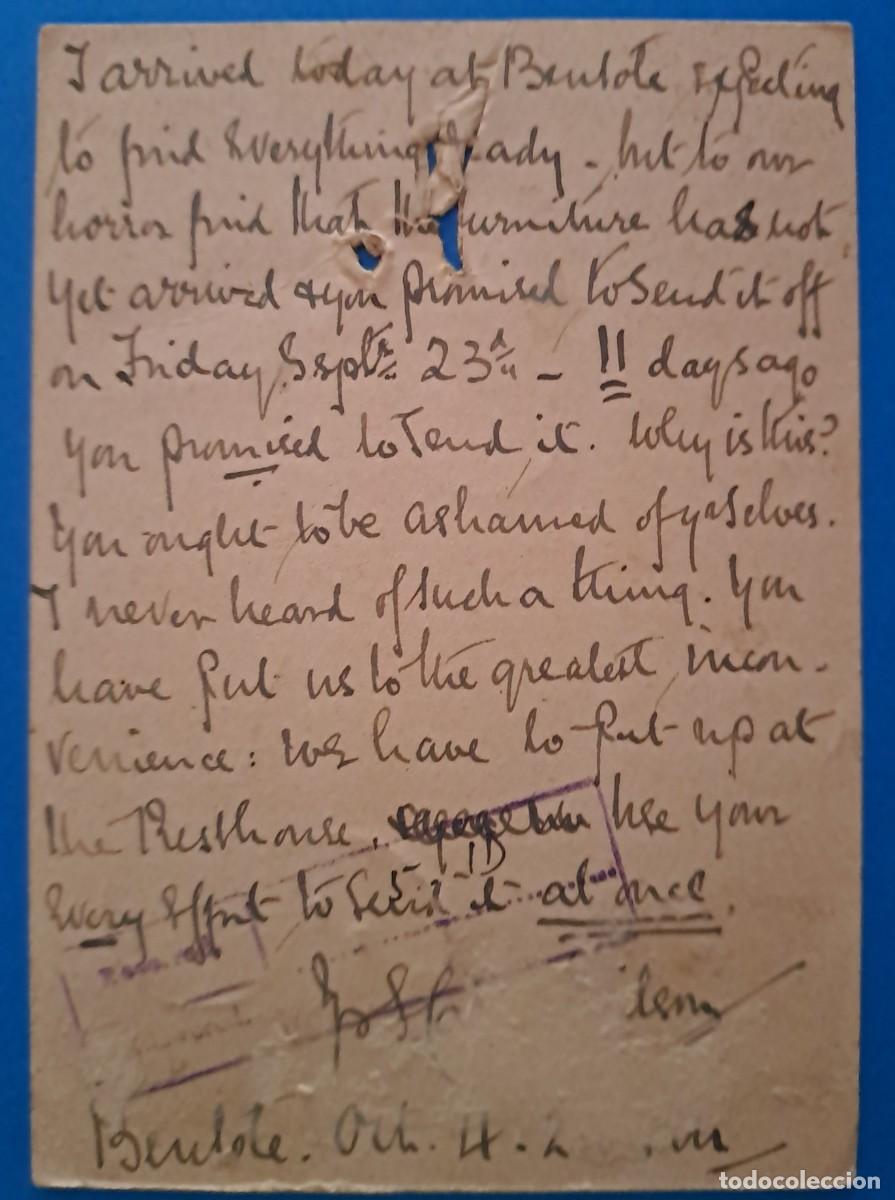 I arrived today at Bentote expecting
to find everything ready - but to our
horror find that the furniture has not
yet arrived & you promised to send it off
on Friday, Septr 23rd - 11 days ago
you promised to send it. Why is this?
You ought to be ashamed of yrselves.
I never heard of such a thing. You
have put us to the greatest incon-
venience: we have to put up at
the Resthouse. Use your
every effort to send it at once.
ilson
Bentote. Oct. 4. 2
todocoleccion